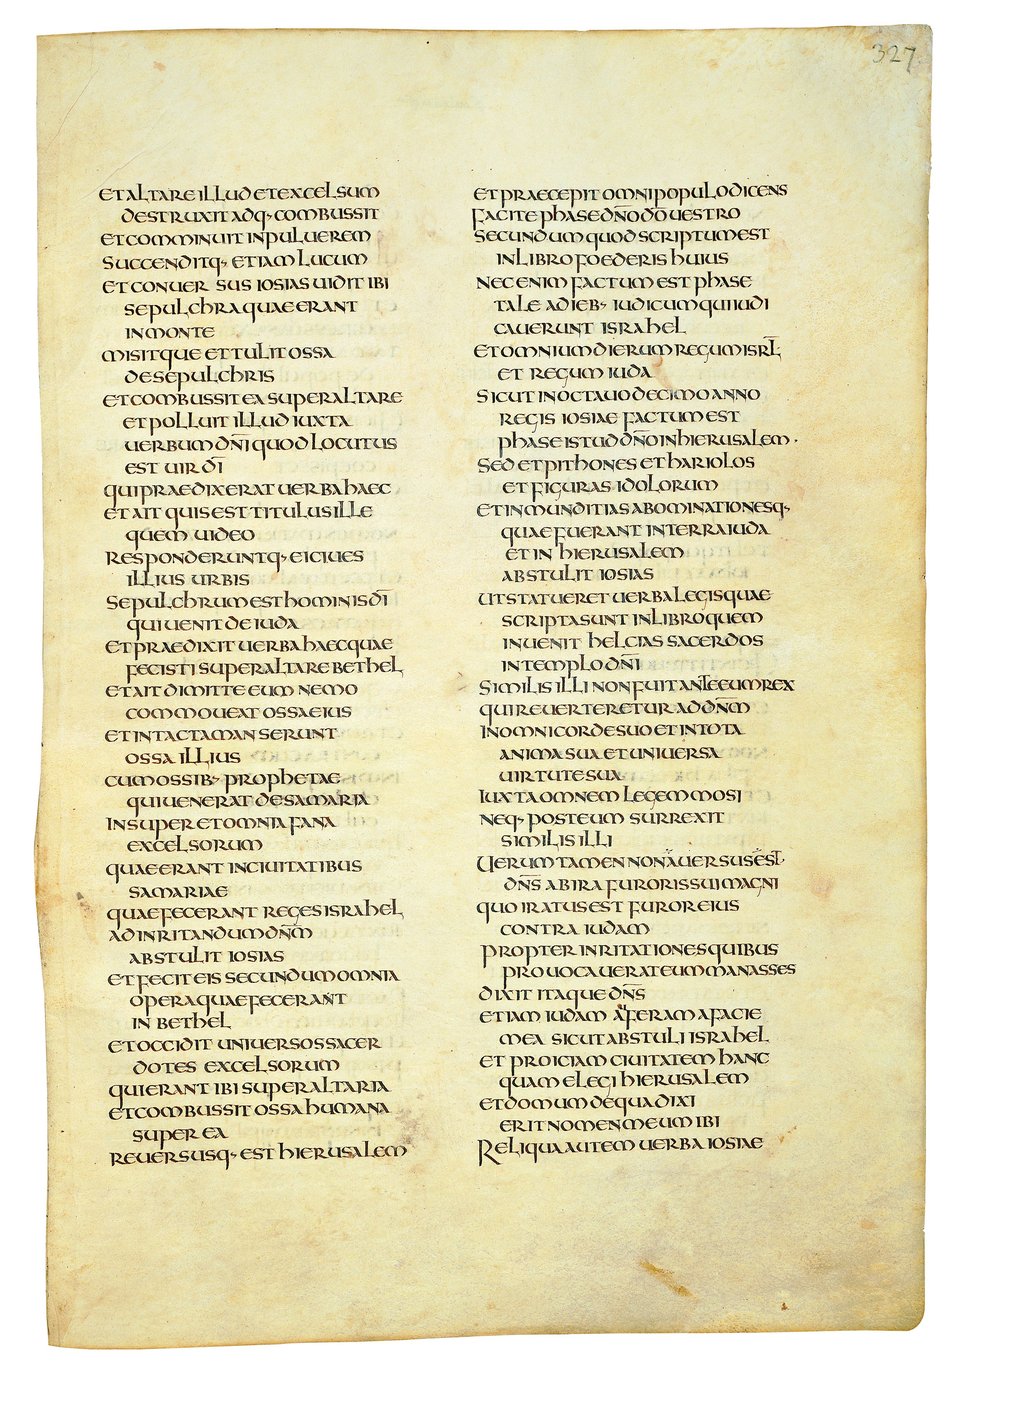 327
ETALTARE ILLUD ETEXCELSUM
DESTRUXIT ADQ· COMBUSSIT
ETCOMMINUIT INPULUEREM
SUCCENDITQ· ETIAM LUCUM
ETCONUER SUS IOSIAS UIDIT IBI
SEPULCHRA QUAE ERANT
IN MONTE
MISITQUE ET TULIT OSSA
DESEPULCHRIS
ETCOMBUSSIT EA SUPER ALTARE
ET POLLUIT ILLUD IUXTA
UERBUM DN̄I QUOD LOCUTUS
EST UIR DĪ
QUI PRAEDIXERAT UERBA HAEC
ET AIT QUIS EST TITULUS ILLE
QUEM UIDEO
RESPONDERUNTQ· EI CIUES
ILLIUS URBIS
SEPULCHRUM EST HOMINIS DĪ
QUI UENIT DE IUDA
ET PRAEDIXIT UERBA HAEC QUAE
FECISTI SUPER ALTARE BETHEL
ET AIT DIMITTE EUM NEMO
COMMOUEAT OSSA EIUS
ET INTACTA MANSERUNT
OSSA ILLIUS
CUM OSSIB· PROPHETAE
QUI UENERAT DE SAMARIA
INSUPER ET OMNIA FANA
EXCELSORUM
QUAE ERANT IN CIUITATIBUS
SAMARIAE
QUAE FECERANT REGES ISRAHEL
AD INRITANDUM DN̄M
ABSTULIT IOSIAS
ET FECIT EIS SECUNDUM OMNIA
OPERA QUAE FECERANT
IN BETHEL
ET OCCIDIT UNIUERSOS SACER
DOTES EXCELSORUM
QUI ERANT IBI SUPER ALTARIA
ET COMBUSSIT OSSA HUMANA
SUPER EA
REUERSUSQ· EST HIERUSALEM
ET PRAECEPIT OMNI POPULO DICENS
FACITE PHASE DN̄O DŌ UESTRO
SECUNDUM QUOD SCRIPTUM EST
IN LIBRO FOEDERIS HUIUS
NEC ENIM FACTUM EST PHASE
TALE A DIEB· IUDICUM QUI IUDI
CAUERUNT ISRAHEL
ET OMNIUM DIERUM REGUM ISRL̄
ET REGUM IUDA
SICUT IN OCTAUO DECIMO ANNO
REGIS IOSIAE FACTUM EST
PHASE ISTUD DN̄O IN HIERUSALEM·
SED ET PITHONES ET HARIOLOS
ET FIGURAS IDOLORUM
ET INMUNDITIAS ABOMINATIONESQ·
QUAE FUERANT IN TERRA IUDA
ET IN HIERUSALEM
ABSTULIT IOSIAS
UT STATUERET UERBA LEGIS QUAE
SCRIPTA SUNT IN LIBRO QUEM
INUENIT HELCIAS SACERDOS
IN TEMPLO DN̄I
SIMILIS ILLI NON FUIT ANTE EUM REX
QUI REUERTERETUR AD DN̄M
IN OMNI CORDE SUO ET IN TOTA
ANIMA SUA ET UNIUERSA
UIRTUTE SUA
IUXTA OMNEM LEGEM MOSI
NEQ· POST EUM SURREXIT
SIMILIS ILLI
UERUM TAMEN NON AUERSUS EST·
DN̄S AB IRA FURORIS SUI MAGNI
QUO IRATUS EST FUROR EIUS
CONTRA IUDAM
PROPTER INRITATIONES QUIBUS
PROUOCAUERAT EUM MANASSES
DIXIT ITAQUE DN̄S
ETIAM IUDAM AUFERAM A FACIE
MEA SICUT ABSTULI ISRAHEL
ET PROICIAM CIUITATEM HANC
QUAM ELEGI HIERUSALEM
ET DOMUM DE QUA DIXI
ERIT NOMEN MEUM IBI
RELIQUA AUTEM UERBA IOSIAE